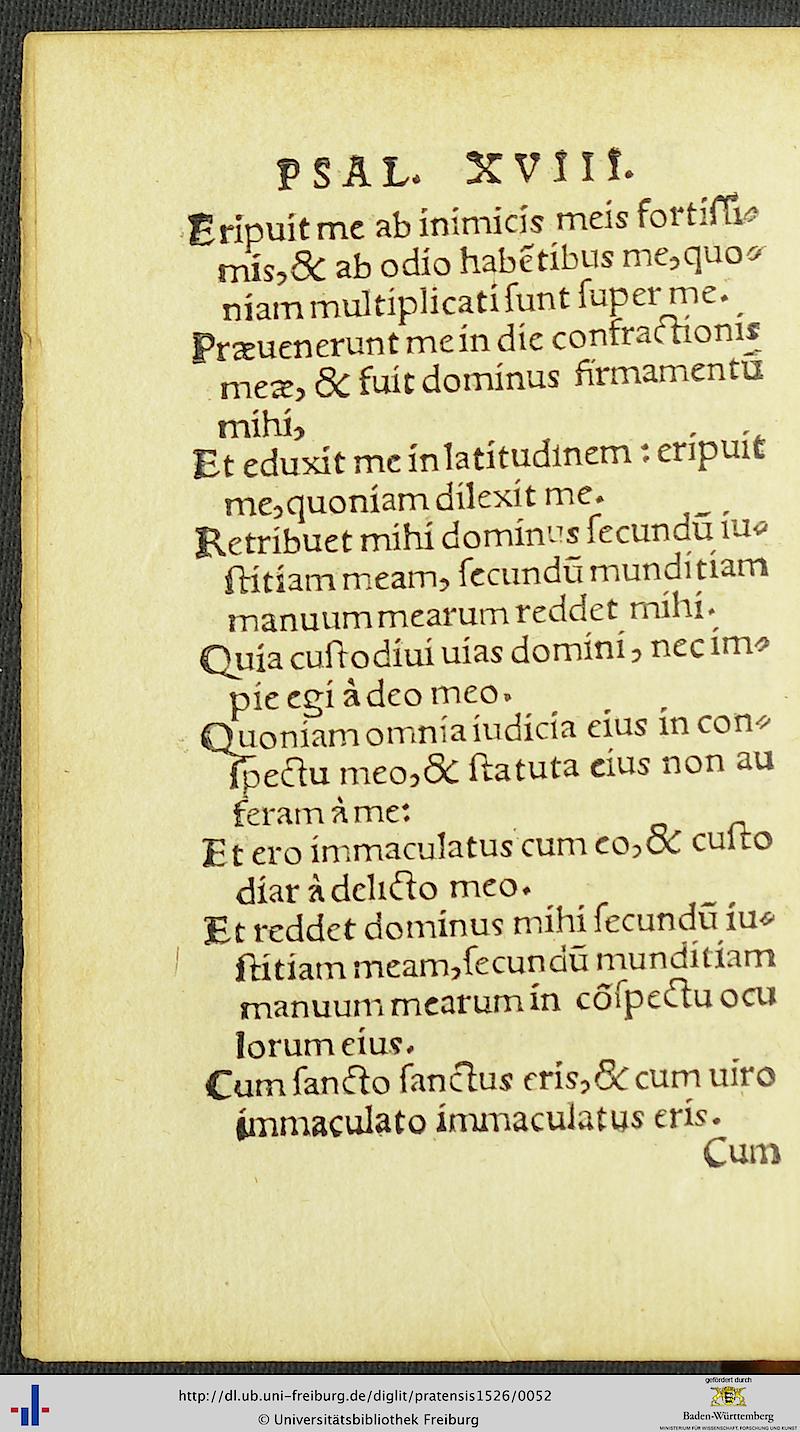 PSAL. XVIII.
Eripuit me ab inimicis meis fortiſſi-
mis, & ab odio habẽtibus me, quo-
niam multiplicati ſunt ſuper me.
Præuenerunt me in die confractionis
meæ, & fuit dominus firmamentũ
mihi,
Et eduxit me in latitudinem : eripuit
me, quoniam dilexit me.
Retribuet mihi dominus ſecundũ iu-
ſtitiam meam, ſecundũ munditiam
manuum mearum reddet mihi.
Quia cuſtodiui uias domini, nec im-
pie egi à deo meo.
Quoniam omnia iudicia eius in con-
ſpectu meo, & ſtatuta eius non au
feram à me:
Et ero immaculatus cum eo, & cuſto
diar à delicto meo.
Et reddet dominus mihi ſecundũ iu-
ſtitiam meam, ſecundũ munditiam
manuum mearum in cõſpectu ocu
lorum eius.
Cum ſancto ſanctus eris, & cum uiro
immaculato immaculatus eris.
Cum
http://dl.ub.uni-freiburg.de/diglit/pratensis1526/0052
© Universitätsbibliothek Freiburg
gefördert durch
Baden-Württemberg
MINISTERIUM FÜR WISSENSCHAFT, FORSCHUNG UND KUNST